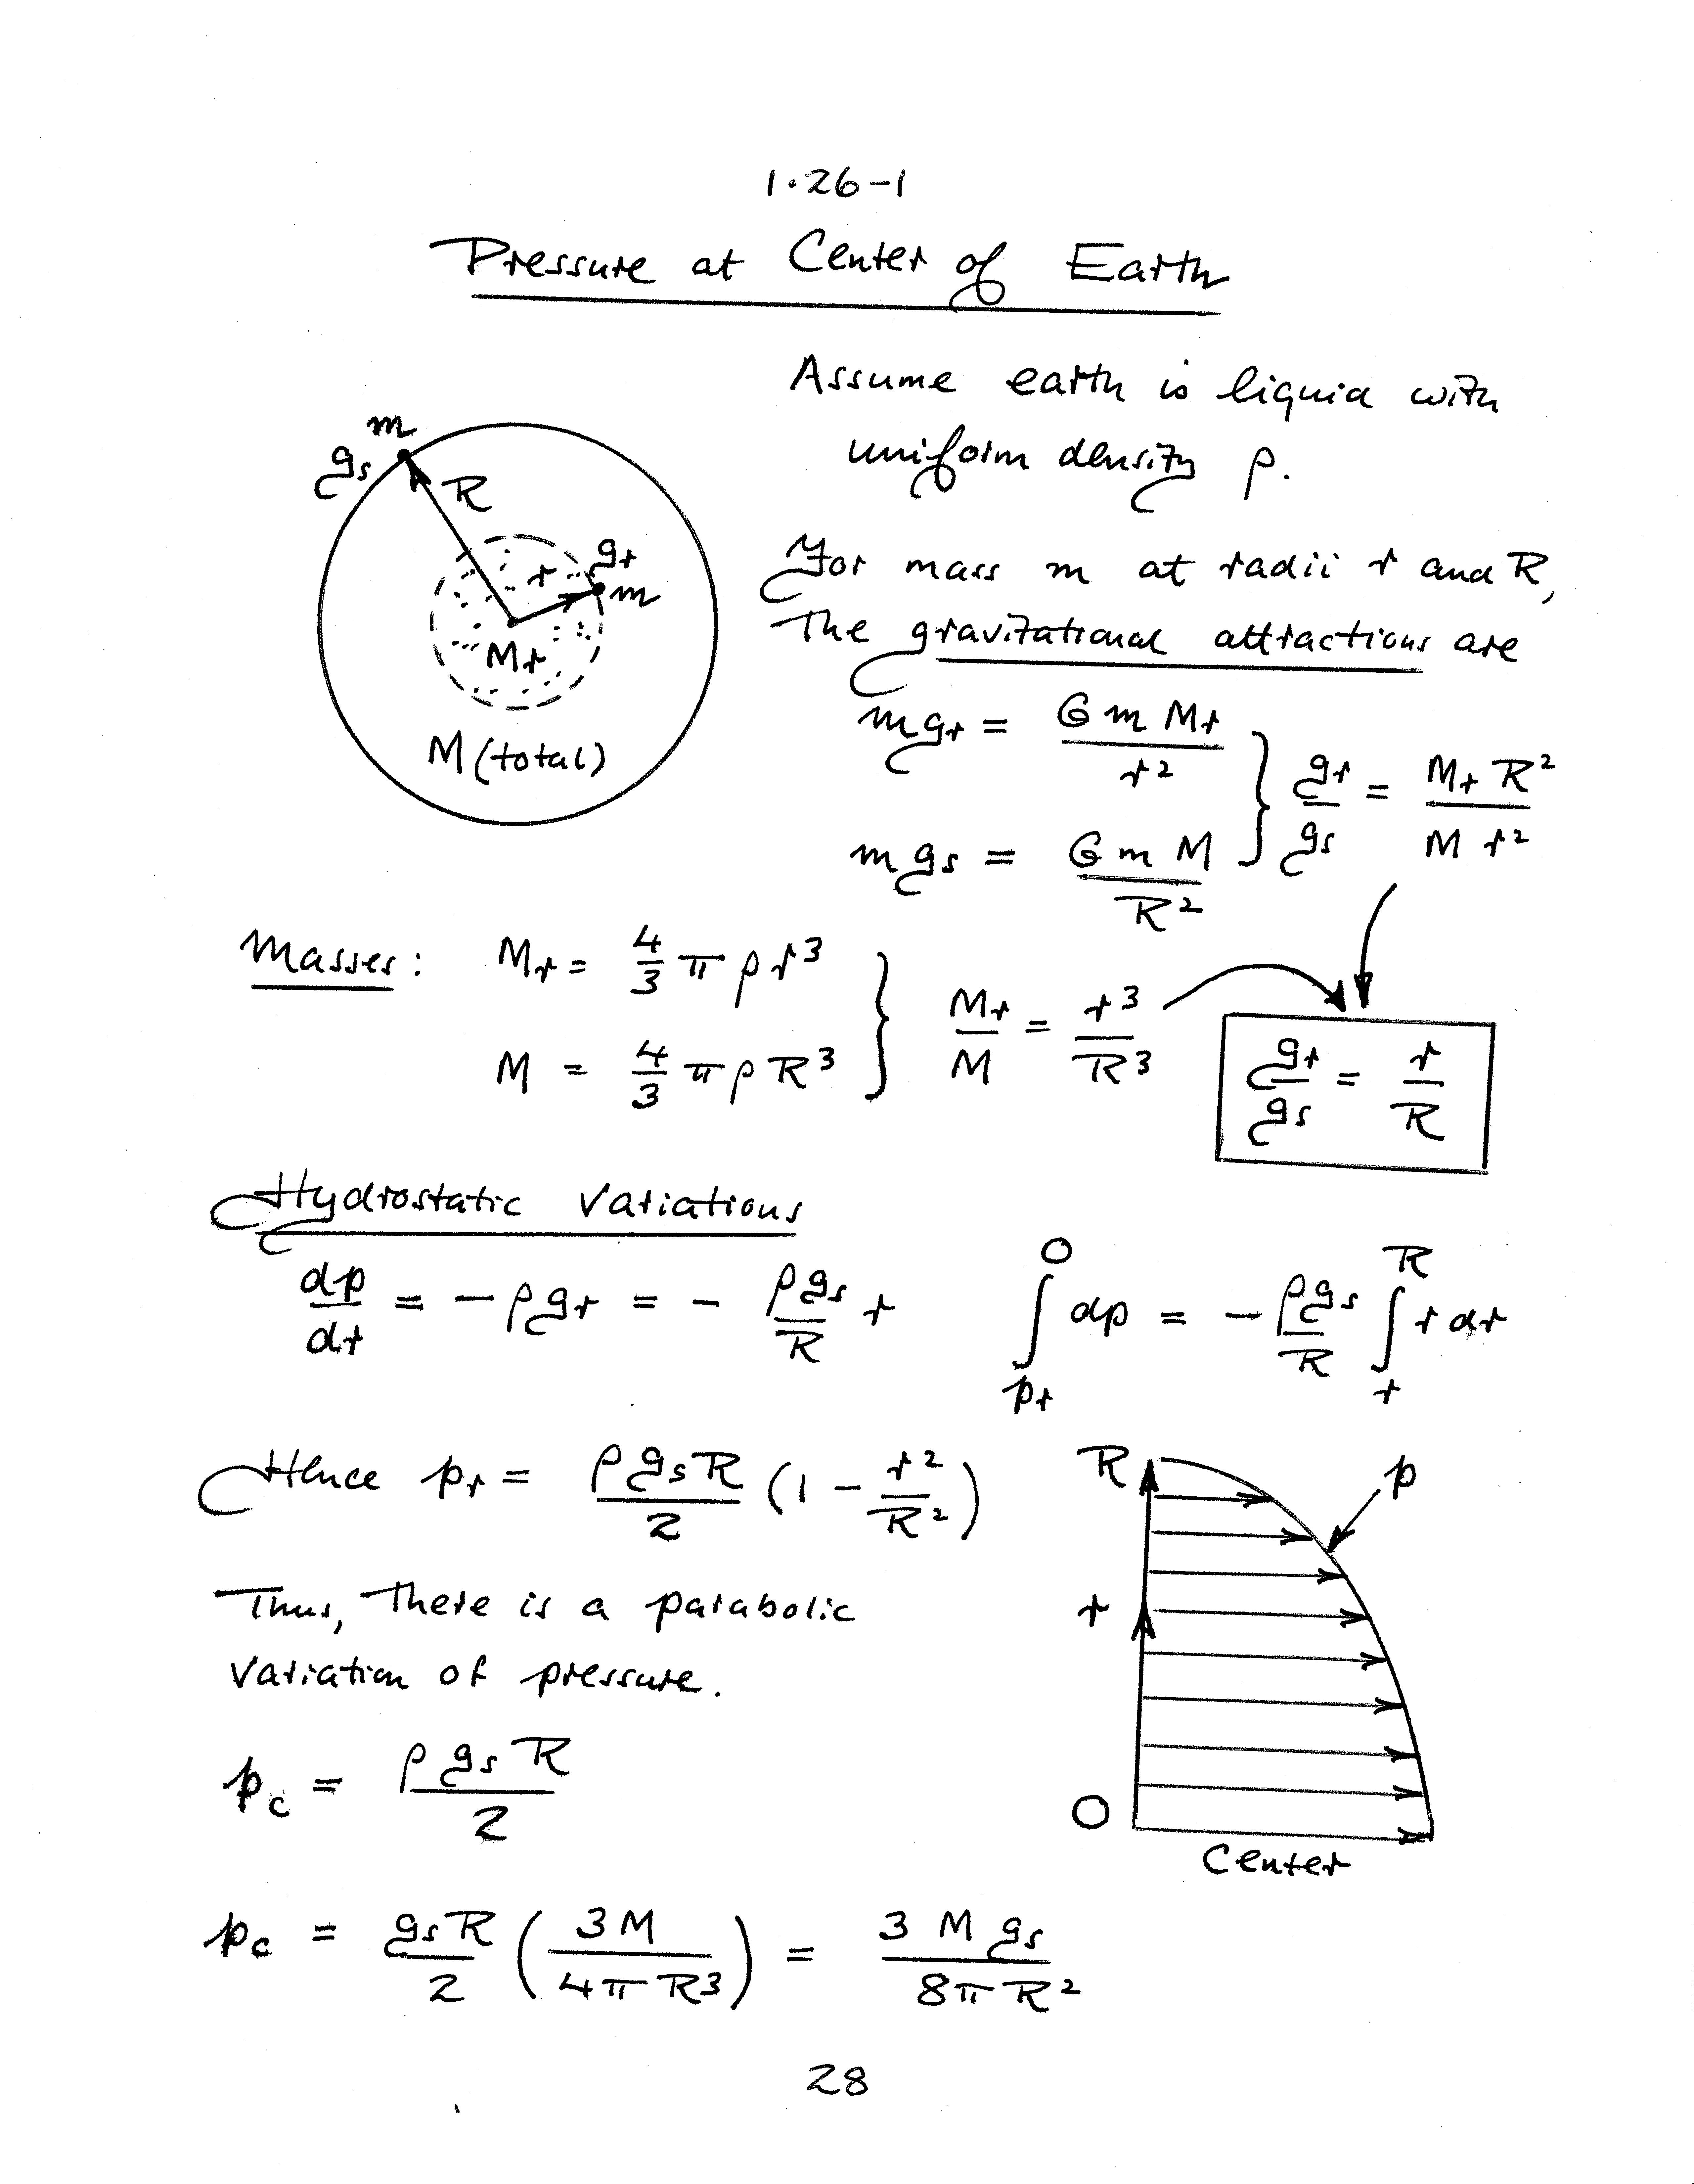 1.26-1
Pressure at Center of Earth
Assume earth is liquid with
uniform density ρ.
m
gs
R
gr
r
m
Mr
M (total)
For mass m at radii r and R,
the gravitational attractions are
m gr = G m Mr / r²
m gs = G m M / R²
} gr / gs = Mr R² / M r²
Masses: Mr = 4/3 π ρ r³
M = 4/3 π ρ R³
} Mr / M = r³ / R³
gr / gs = r / R
Hydrostatic Variations
dp/dr = - ρ gr = - ρ gs / R r
∫_{pr}^{0} dp = - ρ gs / R ∫_{r}^{R} r dr
Hence pr = ρ gs R / 2 (1 - r² / R²)
Thus, there is a parabolic
variation of pressure.
R
p
r
O
Center
pc = ρ gs R / 2
pc = gs R / 2 ( 3 M / 4 π R³ ) = 3 M gs / 8 π R²
28